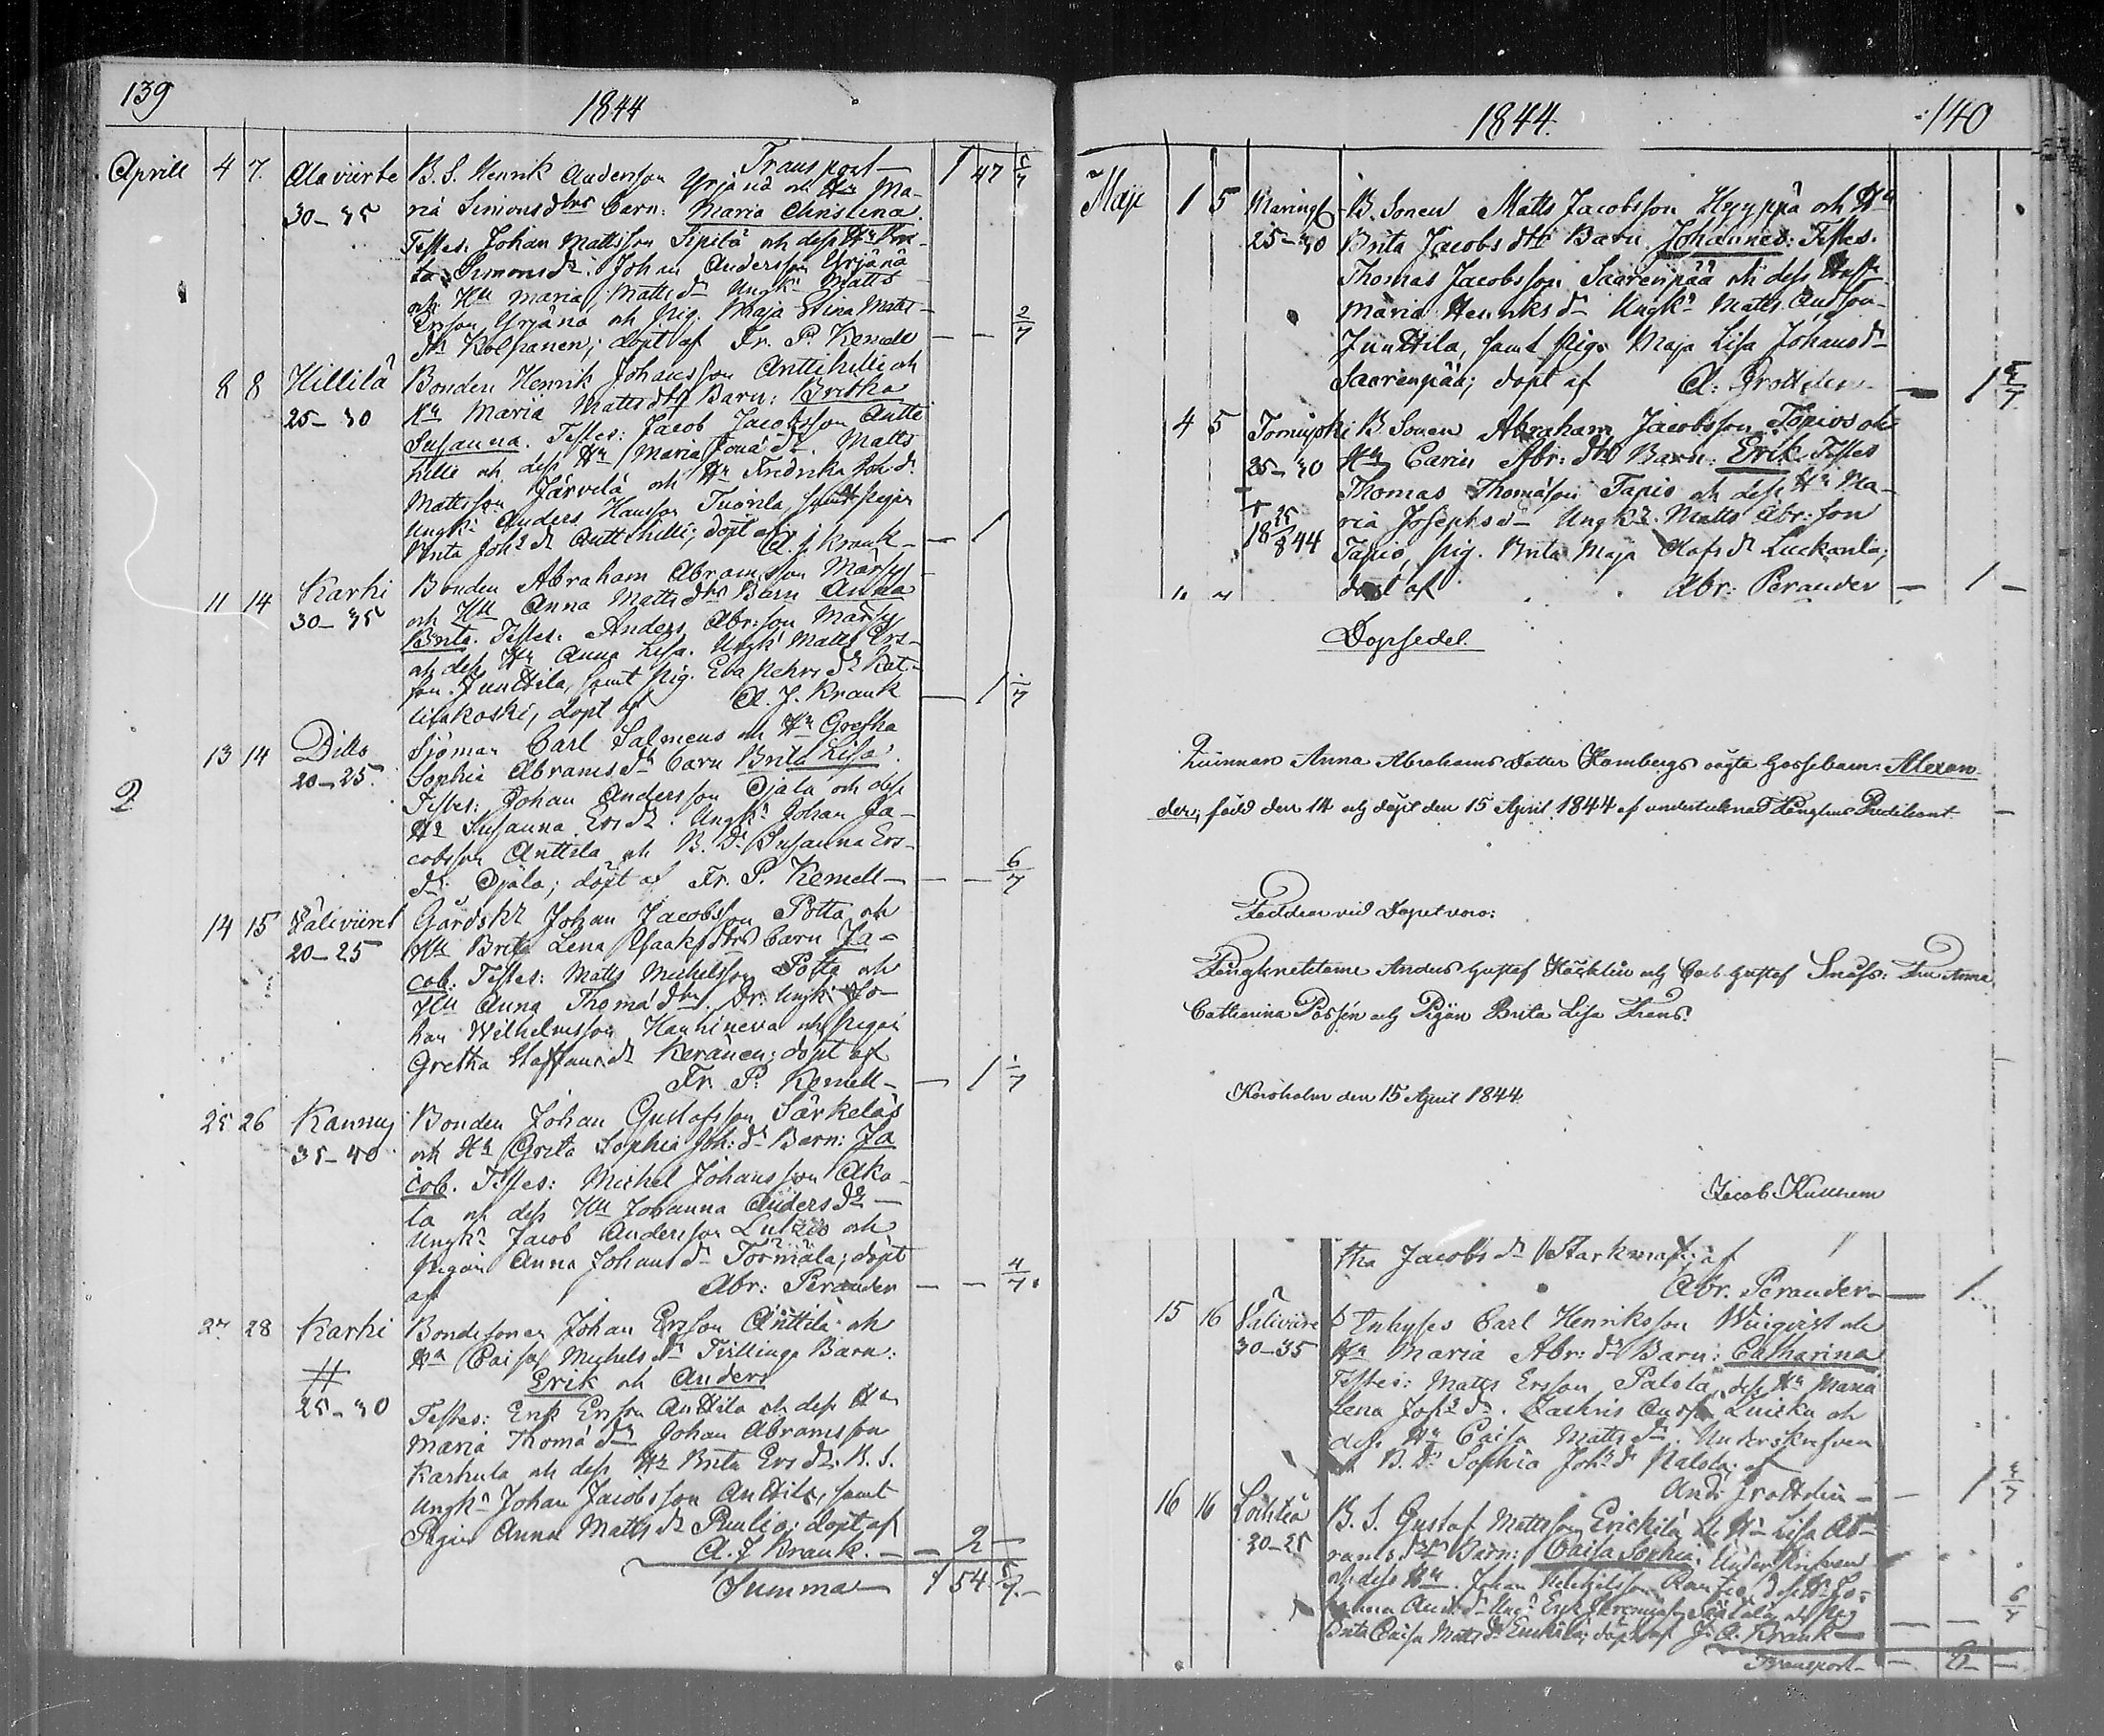 139
1844
Transport 1 47 5/7
Aprill 4 7. Alaviirte B. S. Henrik Andersson Yrjänä och Hu Ma-
30-35 ria Simonsdtrs barn: Maria Christina.
Testes. Johan Mattsson Sipilä och dess Hu
Simonsdr. Johan Andersson Yrjänä
och Hu Maria Mattsdr Ungk: Matts
Ersson Yrjänä och pig. Maja Stina Matts-
dr Kolpanen; döpt af Fr. P. Kemell — — 2/7
8 8 Hillilä Bonden Henrik Johansson Anttihilli och
25-30 Hu Maria Mattsdtrs Barn: Britha
Susanna. Testes: Jacob Jacobsson Antti
hilli och dess Hu Maria Jonædr. Matts
Mattsson Järvelä och Hu Fredrika Joh.dr
Ungk: Anders Hansson Tuorila samt pigan
Brita Joh:dr Anttihilli; döpt af A. J. Krank — 1
11 14 Karhi Bonden Abraham Abramsson Märsy
30-35 och Hu Anna Mattsdtrs Barn Anna
Brita. Testes: Anders Abr:son Märsy
och dess Hu Anna Lisa. Ungk: Matts Ers-
son Junttila, samt pig. Eva Pehrsdr Kat-
tilakoski, döpt af A. J. Krank — 1 1/7
13 14 Ditto Sjöman Carl Salmens och Hu Gretha
20-25. Sophia Abramsdr barn Brita Lisa.
2
Testes: Johan Andersson Ojala och dess
Hu Susanna Ersdr. Ungk: Johan Ja-
cobsson Anttila och B. Dr Susanna Ers-
dr. Ojala; döpt af Fr. P. Kemell — — 6/7
14 15 Väliviiret Gårdskr Johan Jacobsson Potta och
20-25 Hu Brita Lena Isaksdtrs barn Ja-
cob. Testes: Matts Michelsson Potta och
Hu Anna Thomædtr. Dr. Ungk: Jo-
han Wilhelmsson Hanhineva och pigan
Gretha Staffansdr Keränen; döpt af
Fr. P. Kemell — 1 1/7
25 26 Kannus Bonden Johan Gustafsson Särkelä
35-40 och Hu Greta Sophia Joh:dr Barn: Ja
cob. Testes: Michel Johansson Ako-
la och dess Hu Johanna Andersdr —
Ungk: Jacob Andersson Lukio och
pigan Anna Johansdr Törmälä; döpt
af Abr: Perander — — 4/7.
27 28 Karhi Bondesonen Johan Ersson Anttila och
Hu Caisa Michelsdr Tvillinge Barn:
Erik och Anders
25-30 Testes: Erik Ersson Anttila och dess Hu
Maria Thomædr Johan Abramsson
Karhula och dess Hu Brita Ersdr. B. S.
Ungk: Johan Jacobsson Anttila, samt
Pigan Anna Mattsdr Paulio; döpt af
A. J. Krank. — 2 —
Summa 1 54 5/7.
1844.
140
Maji 1 5 Maringb B. Sonen Matts Jacobsson Hyyppä och Hu
25-30 Brita Jacobsdtrs Barn Johannes: Testes.
Thomas Jacobsson Saarenpää och dess Hustr
Maria Henriksdr Ungk: Matts Andson
Junttila, samt pigan Maja Lisa Johansdr
Saarenpää; döpt af A: Frottelin — 1
4 5 Tomujoki B. Sonen Abraham Jacobsson Topios och
25-30 Hu Carin Abr: dtrs Barn: Erik. Testes
Thomas Thomæson Tapio och dess Hu Ma-
† 25 ria Josephsdr Ungk: Matts Abr:son
18 8 44 Tapio, pig. Brita Maja Olofsdr Luckanla;
döpt af Abr: Perander — 1 —
Dopsedel.
Qvinnan Anna Abrahams Dotter Hambergs oägta Gossebarn: Alexan-
der, född den 14 och döpt den 15 April 1844 af undertecknad Fängelse Predikant.
Faddrar vid Dopet voro:
Fångknektarne Anders Gustaf Häcklin och Carl Gustaf Smuss: Fru Anna
Catharina Possén och Pigan Brita Lisa Frens.
Korsholm den 15 April 1844.
Jacob Kullhem
tha Jacobsdr Starkmans; af
Abr. Perander — 1
15 16 Väliviire Inhyses Carl Henriksson Winqvist och
30-35 Hu Maria Abr: dr Barn: Catharina
Testes: Matts Ersson Palola, dess Hu Maria
Lena Joh:dr. Zachris Andss Luicku och
dess Hu Caisa Mattsdr. Underskrifven
och B. Dr Sophia Joh:dr Palola; af
And: Frottelin — 1
16 16 Lochteå B. S. Gustaf Mattsson Erickilä och Hu Lisa Ab-
20-25 ramsdtrs Barn: Caisa Sophia. Underskrifven
och dess Hu. Johan
Brita Caisa Mattsdr döpt af J. A. Krank — — 6/7
Transport — 6 —